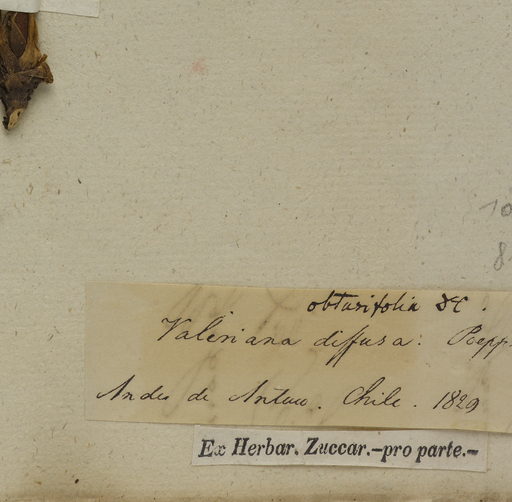 10
8
obtusifolia DC.
Valeriana diffusa: Poepp.
Andes de Antuco. Chile. 1829
Ex Herbar. Zuccar.-pro parte.-